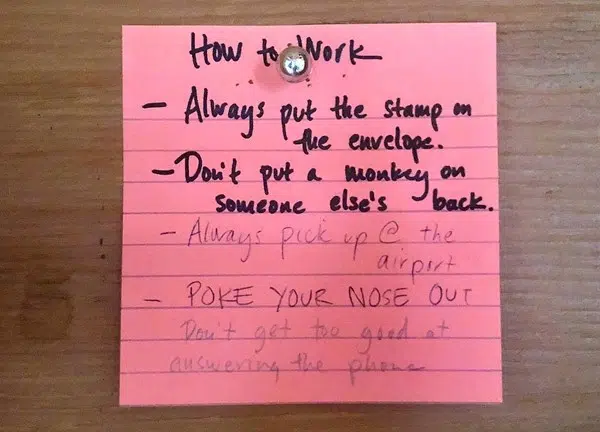 How to Work
- Always put the stamp on
the envelope.
- Don't put a monkey on
someone else's back.
- Always pick up @ the
airport
- POKE YOUR NOSE OUT
Don't get too good at
answering the phone